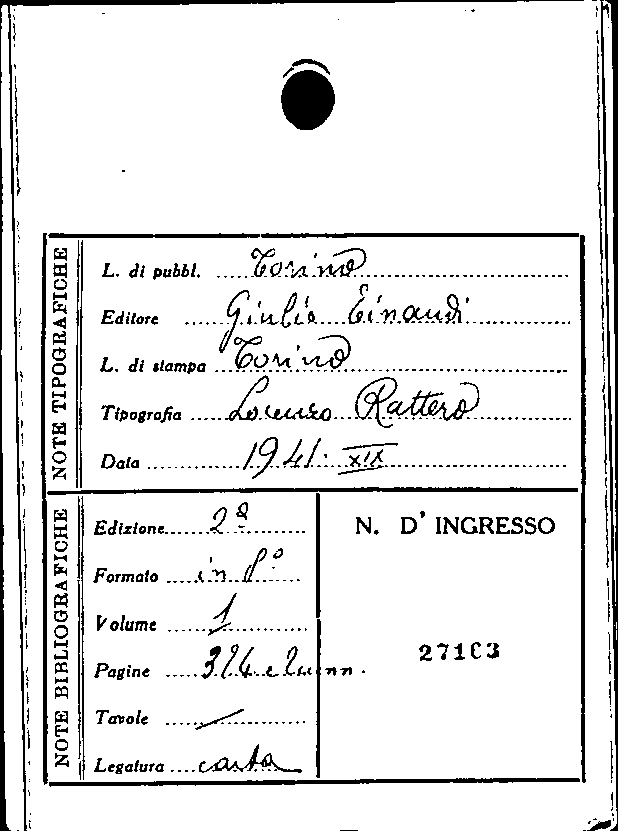 NOTE TIPOGRAFICHE
L. di pubbl. Torino
Editore Giulio Einaudi
L. di stampa Torino
Tipografia Lorenzo Rattero
Data 1941. XIX
NOTE BIBLIOGRAFICHE
Edizione 2ª
Formato in 8º
Volume 1
Pagine 324 e
Tavole /
Legatura carta
N. D' INGRESSO
27103